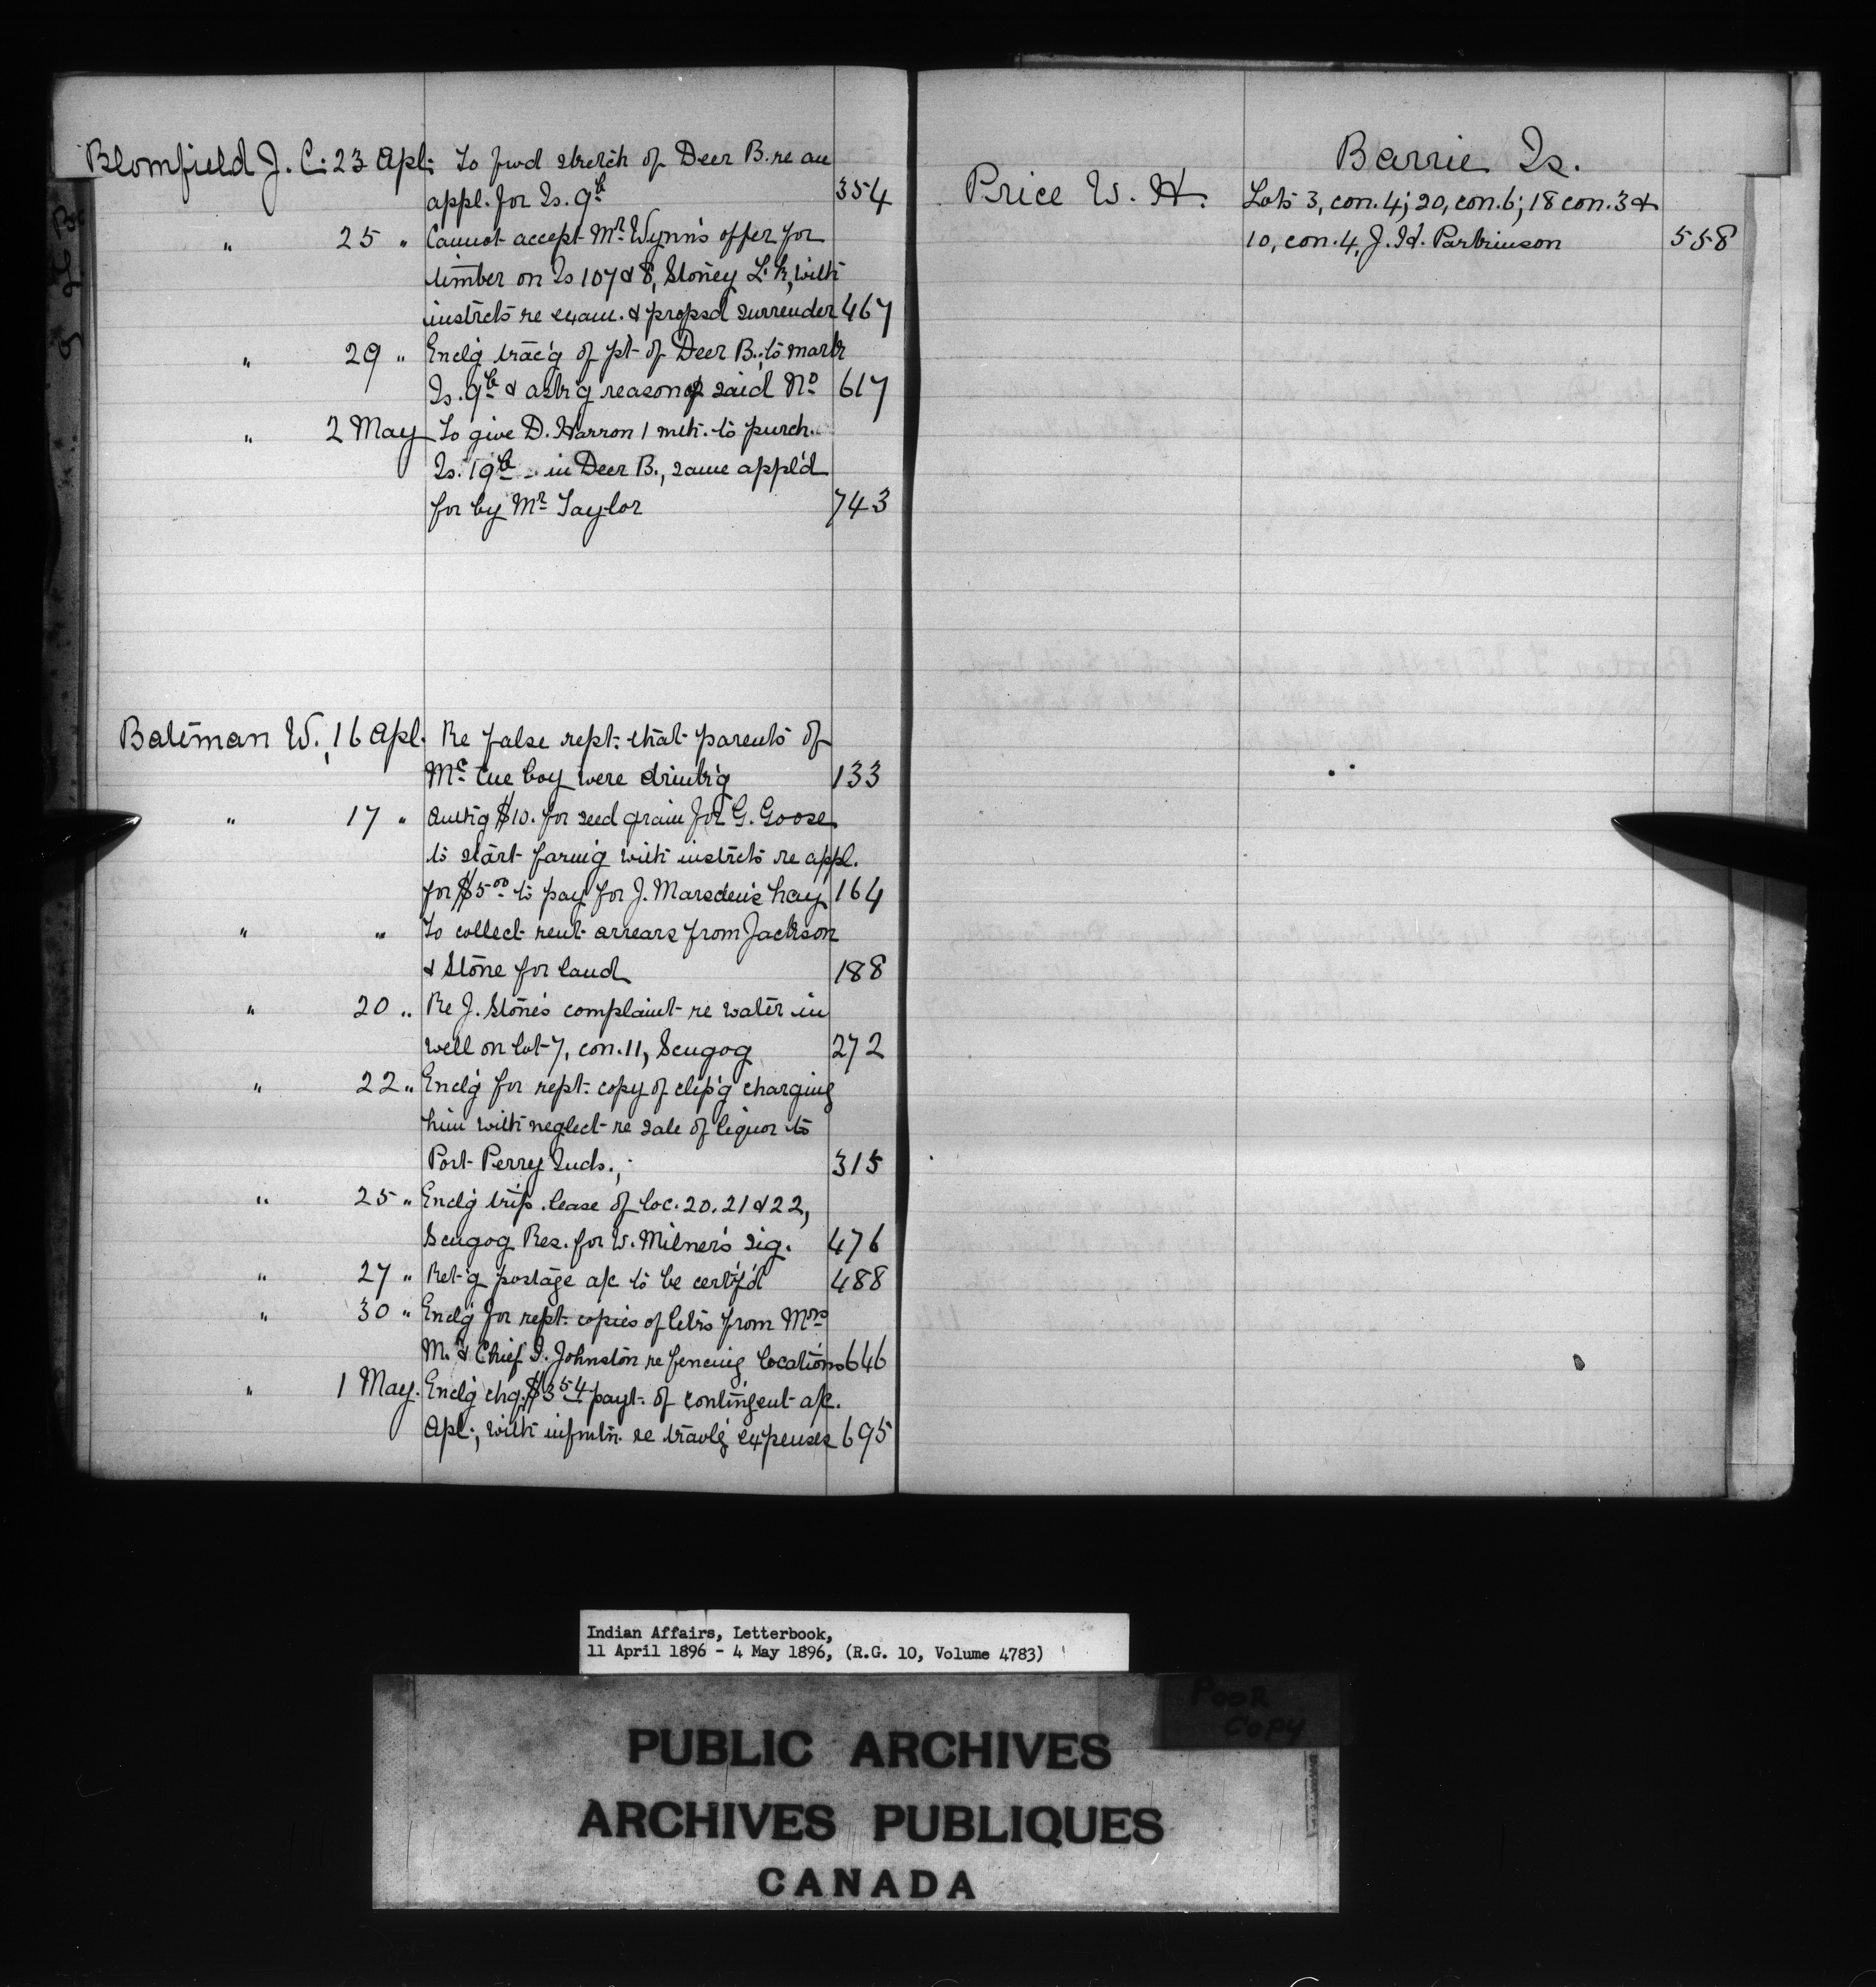 Blomfield J. C. 23 Apl. To fwd sketch of Deer B. re an
appl. for Is. 9b 354
" 25 " Cannot accept Mr. Wynn's offer for
timber on Is 107 & 8, Stoney L. k, with
instrcts re exam. & propsd surrender 467
" 29 " Enclg trac'g of pt. of Deer B., to mark
Is. 9b & ask'g reason of said No 617
" 2 May To give D. Harron 1 mth. to purch.
Is. 19b in Deer B., same appl'd
for by Mr Taylor 743
Bateman W. 16 Apl. Re false rept. that parents of
Mc Cue boy were drink'g 133
" 17 " Authg $10. for seed grain for G. Goose
to start farm'g with instrcts re appl.
for $5.00 to pay for J. Marsden's hay 164
" " To collect rent arrears from Jackson
& Stone for land 188
" 20 " Re J. Stone's complaint re water in
well on lot 7, con. 11, Scugog 272
" 22 " Enclg for rept. copy of clip'g charging
him with neglect re sale of liquor to
Port Perry Inds., 315
" 25 " Enclg trip. lease of loc. 20. 21 & 22,
Scugog Res. for W. Milner's sig. 476
" 27 " Ret'g postage a/c to be certif'd 488
" 30 " Enclg for rept. copies of letrs from Mrs
M. & Chief I. Johnston re fencing locations 646
" 1 May. Enclg chq. $3.54 payt. of contingent a/c.
Apl., with infmtn. re travlg expenses 695
Barrie Is.
Price W. H. Lots 3, con. 4; 20, con. 6; 18 con. 3 &
10, con. 4, J. H. Parkinson 558
Indian Affairs, Letterbook,
11 April 1896 - 4 May 1896, (R.G. 10, Volume 4783)
POOR
COPY
PUBLIC ARCHIVES
ARCHIVES PUBLIQUES
CANADA